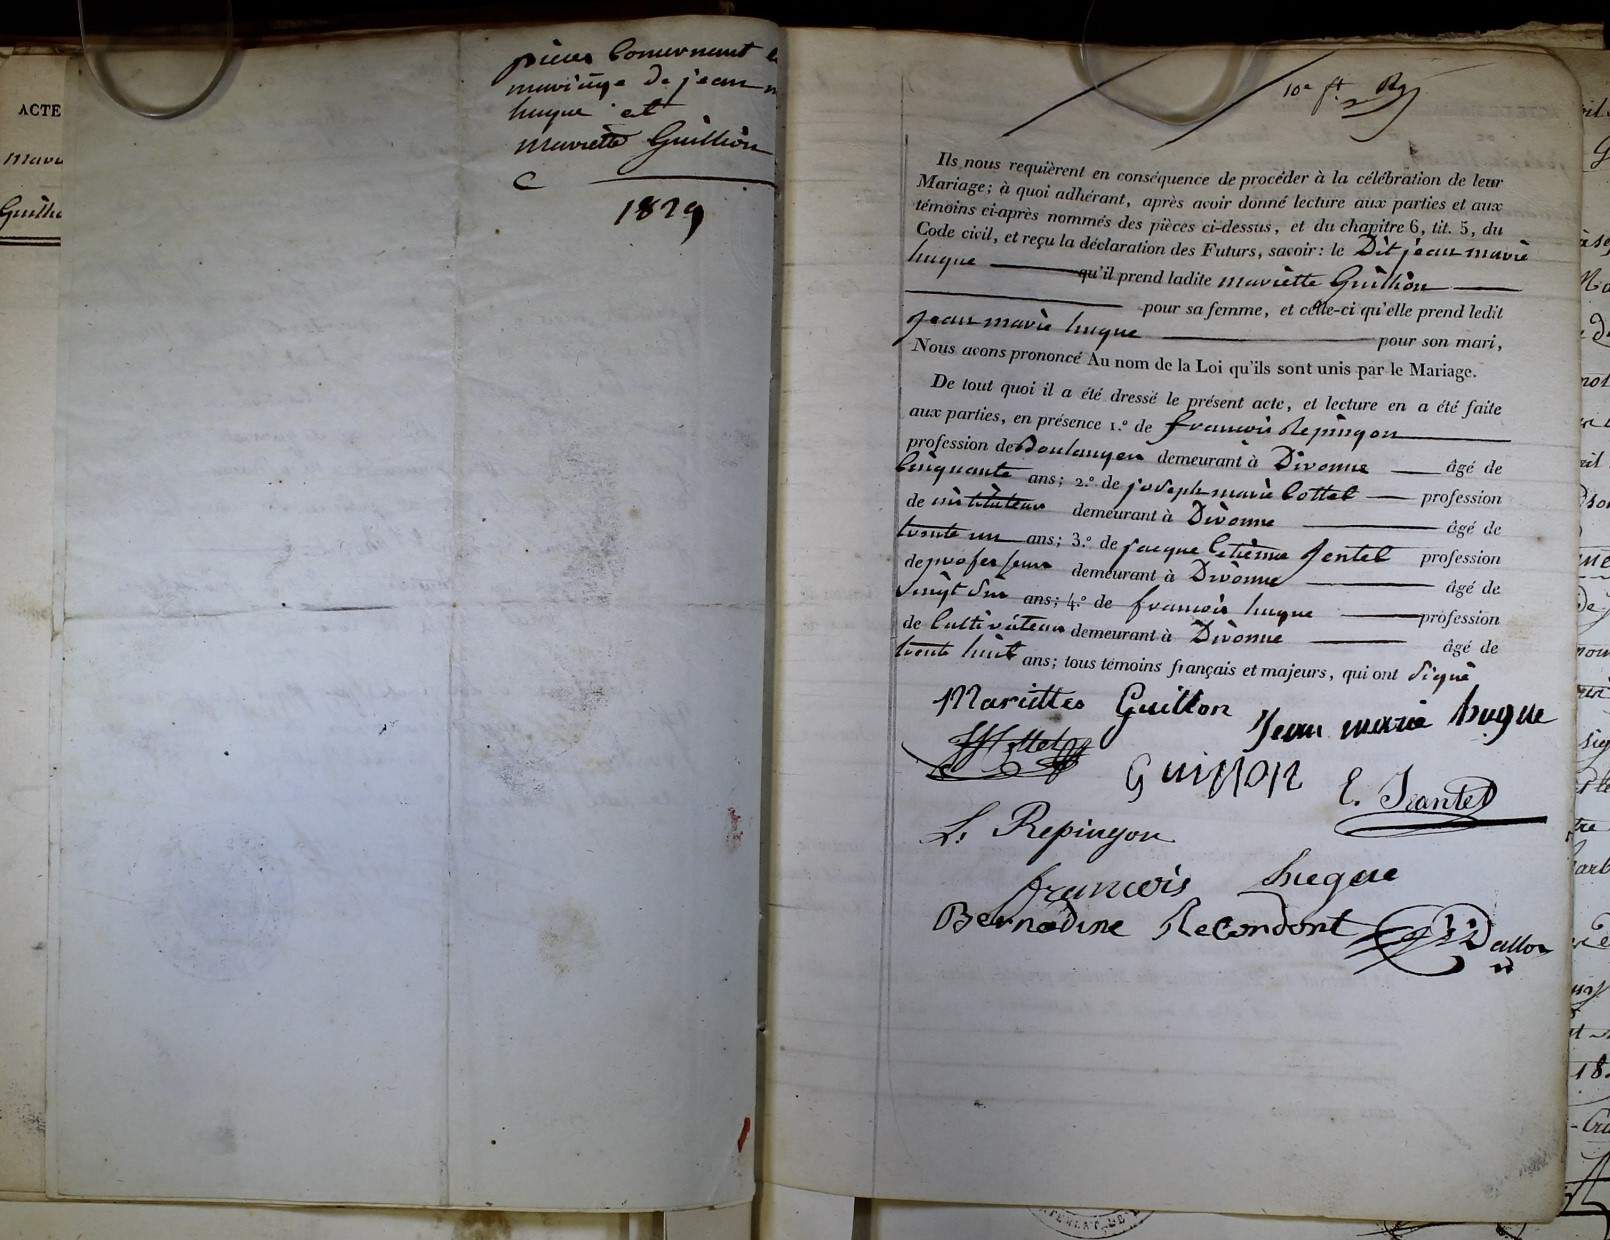 ACTE
pièces Concernant
mariage de jean
huque et
mariette Guillion
1829
Ils nous requièrent en conséquence de procéder à la célébration de leur
Mariage; à quoi adhérant, après avoir donné lecture aux parties et aux
témoins ci-après nommés des pièces ci-dessus, et du chapitre 6, tit. 5, du
Code civil, et reçu la déclaration des Futurs, savoir: le Dit jean marie
huque qu'il prend ladite mariette Guillion
pour sa femme, et celle-ci qu'elle prend ledit
jean marie huque pour son mari,
Nous avons prononcé Au nom de la Loi qu'ils sont unis par le Mariage.
De tout quoi il a été dressé le présent acte, et lecture en a été faite
aux parties, en présence 1.° de francois Repingon
profession de Boulanger demeurant à Divonne âgé de
Cinquante ans; 2.° de joseph marie Cottet profession
de instituteur demeurant à Divonne âgé de
trente un ans; 3.° de jacque Etienne Jentel profession
de professeur demeurant à Divonne âgé de
vingt six ans; 4.° de francois huque profession
de Cultivateur demeurant à Divonne âgé de
trente huit ans; tous témoins français et majeurs, qui ont signé
Mariettes Guillon Jean marie huque
Guillon E. Jeantet
Repingon
francois huque
Bernadine Recordont Dalloz